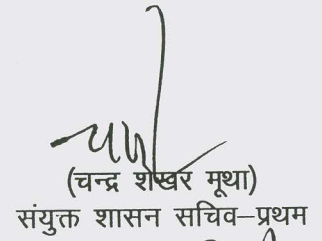 (चन्द्र शेखर मूथा)
संयुक्त शासन सचिव–प्रथम